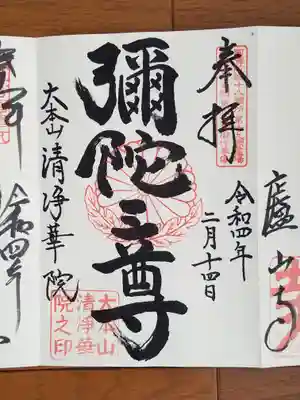 廬山寺
奉拝
令和四年
二月十四日
彌陀三尊
大本山 清浄華院
大本山
清浄華
院之印
令和四年